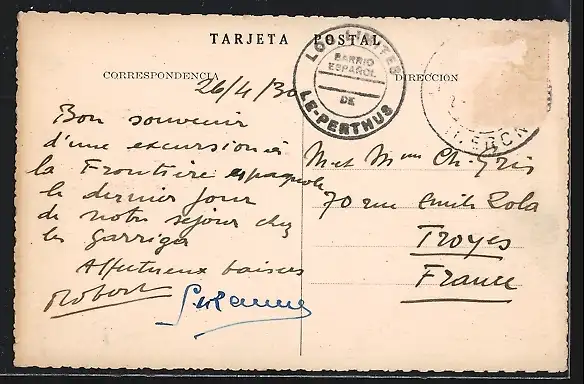 TARJETA POSTAL
CORRESPONDENCIA
DIRECCION
LOS LIMITES
BARRIO
ESPAÑOL
DE
LE-PERTHUS
26/4/30
Bon souvenir
d'une excursion à
la Frontière espagnole
le dernier jour
de notre séjour chez
les Garrigo
Affectueux baisers
Robert Suzanne
M et Mme Ch. Gris
70 rue Emile Zola
Troyes
France